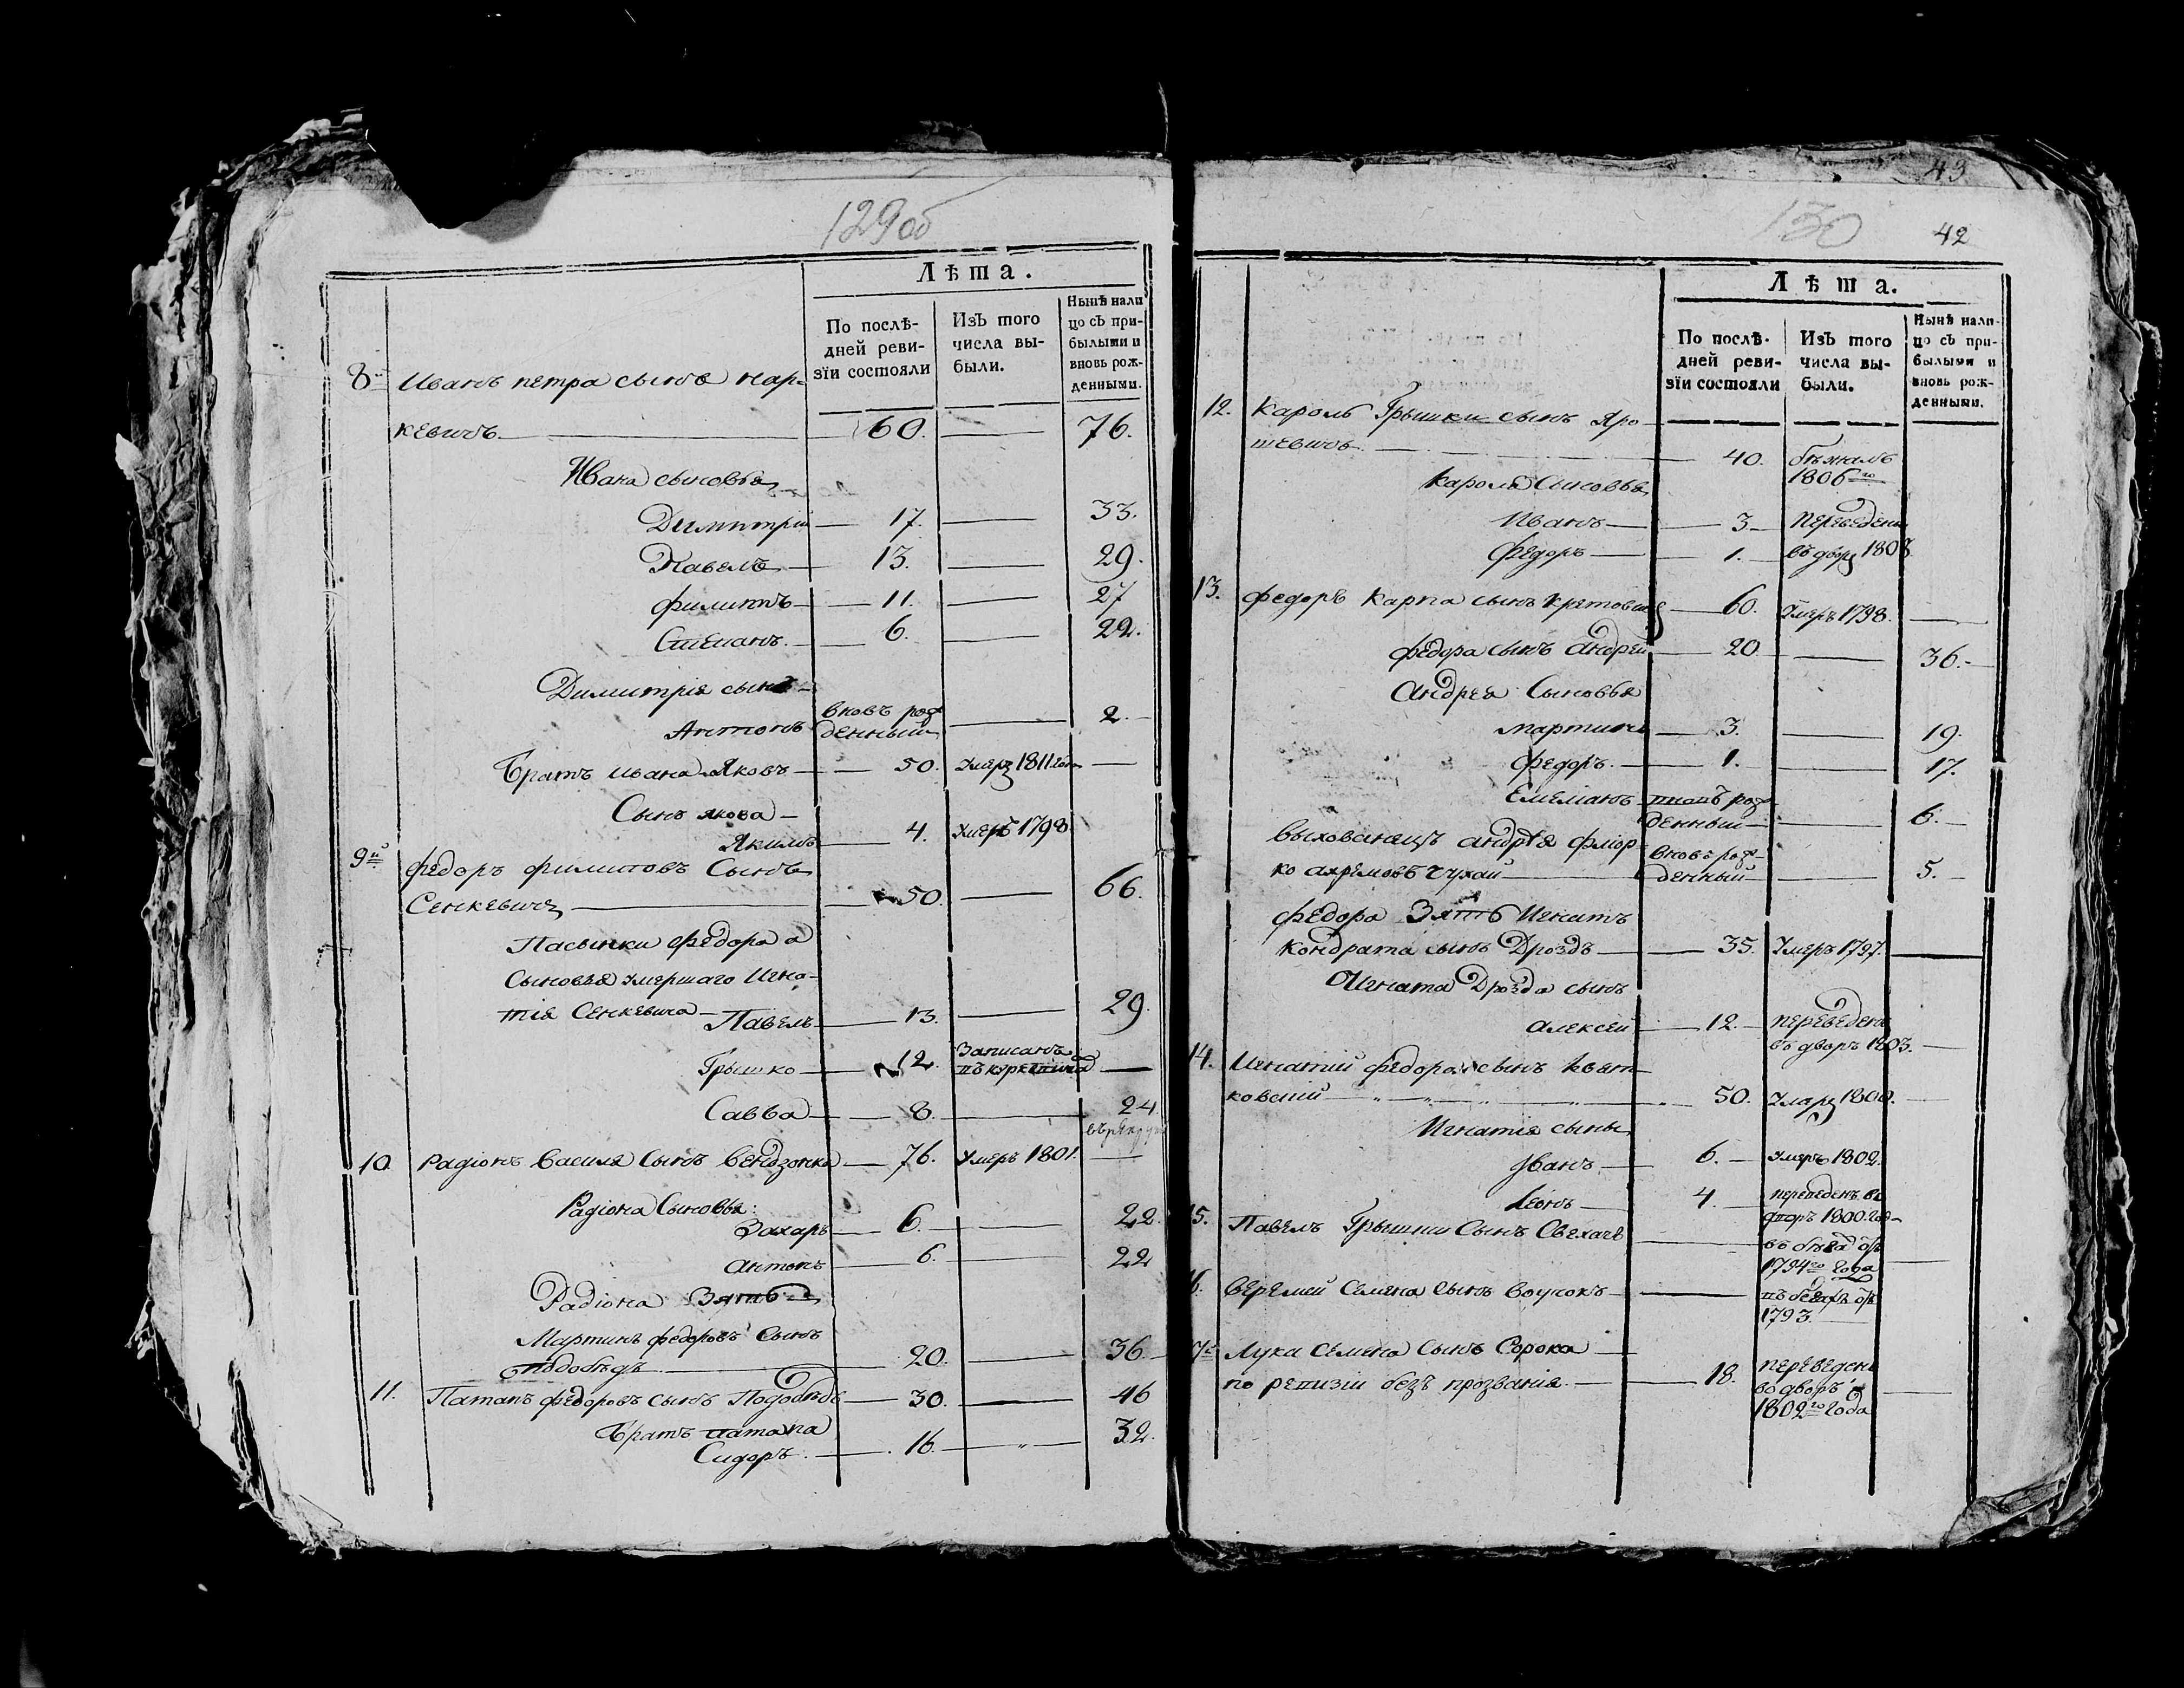 129об
Лѣта.
По послѣ-
дней реви-
зїи состояли
Изъ того
числа вы-
были.
Нынѣ нали
цо съ при-
былыми и
вновь рож-
денными.
8й Иванъ петра сынъ мар-
кевичъ 60. 76.
Ивана сыновья
Димитрий 17. 33.
Павелъ 13. 29.
филиппъ 11. 27
Степанъ 6. 22.
Димитрія сынъ
Антонъ вновь рож
денный 2.
Братъ ивана Яковъ 50. умеръ 1811 года
Сынъ якова
Якимъ 4. умеръ 1798
9й федоръ филиповъ Сынъ
Сенкевичъ 50. 66.
Пасынки федора а
Сыновья умершаго Игна-
тія Сенкевича Павелъ 13. 29.
Грышко 12. Записанъ
Савва 8. 24
10. Радіонъ Василя Сынъ 76. умеръ 1801.
Радіона Сыновья:
Захаръ 6. 22.
антонъ 6. 22
Радіона Зять
Мартинъ федоровъ Сынъ
подобѣдъ 20. 36.
11. Патапъ федоровъ сынъ Подобѣдъ 30. 46
Братъ патапа
Сидоръ. 16. 32.
43
130
42
Лѣта.
По послѣ-
дней реви-
зїи состояли
Изъ того
числа вы-
были.
Нынѣ нали-
цо съ при-
былыми и
вновь рож-
денными.
12. Кароль Грышки сынъ Яро-
шевичъ 40. бѣжалъ
1806го
Кароля Сыновья
Иванъ 3. переведены
федоръ 1. въ дворъ 1808
13. федоръ Карпа сынъ 60. умеръ 1798.
федора сынъ андрей 20 36.
андрея Сыновья
мартинъ 3. 19.
федоръ. 1. 17.
Емельянъ вновь рож
денный 6.
выхованецъ андрея флор-
ко ахремовъ чухай вновь рож-
денный 5.
федора Зять игнатъ
Кондрата сынъ Дроздъ 35. умеръ 1797.
Игната Дрозда сынъ
алексей 12. переведенъ
въ дворъ 1803.
14. Игнатий федора сынъ квят-
ковский 50. умеръ 1800.
Игнатія сыны
Иванъ 6. умеръ 1802.
Леонъ 4. переведенъ во
дворъ 1800 год
15. Павелъ Грышки Сынъ въ бѣгахъ отъ
1794го года
16. Веремей Семена сынъ въ бегахъ отъ
1793.
17й Лука Семена Сынъ Сорока
по ревизіи безъ прозванія. 18. переведенъ
во дворъ
1802го года